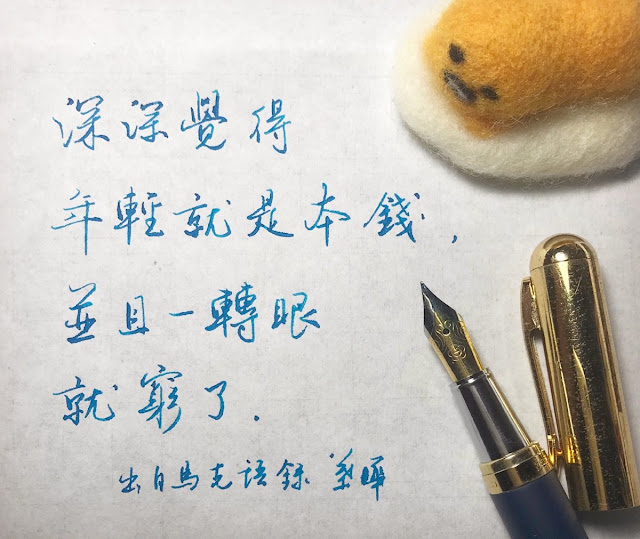 深深覺得
年輕就是本錢，
並且一轉眼
就窮了.
出自馬克语錄